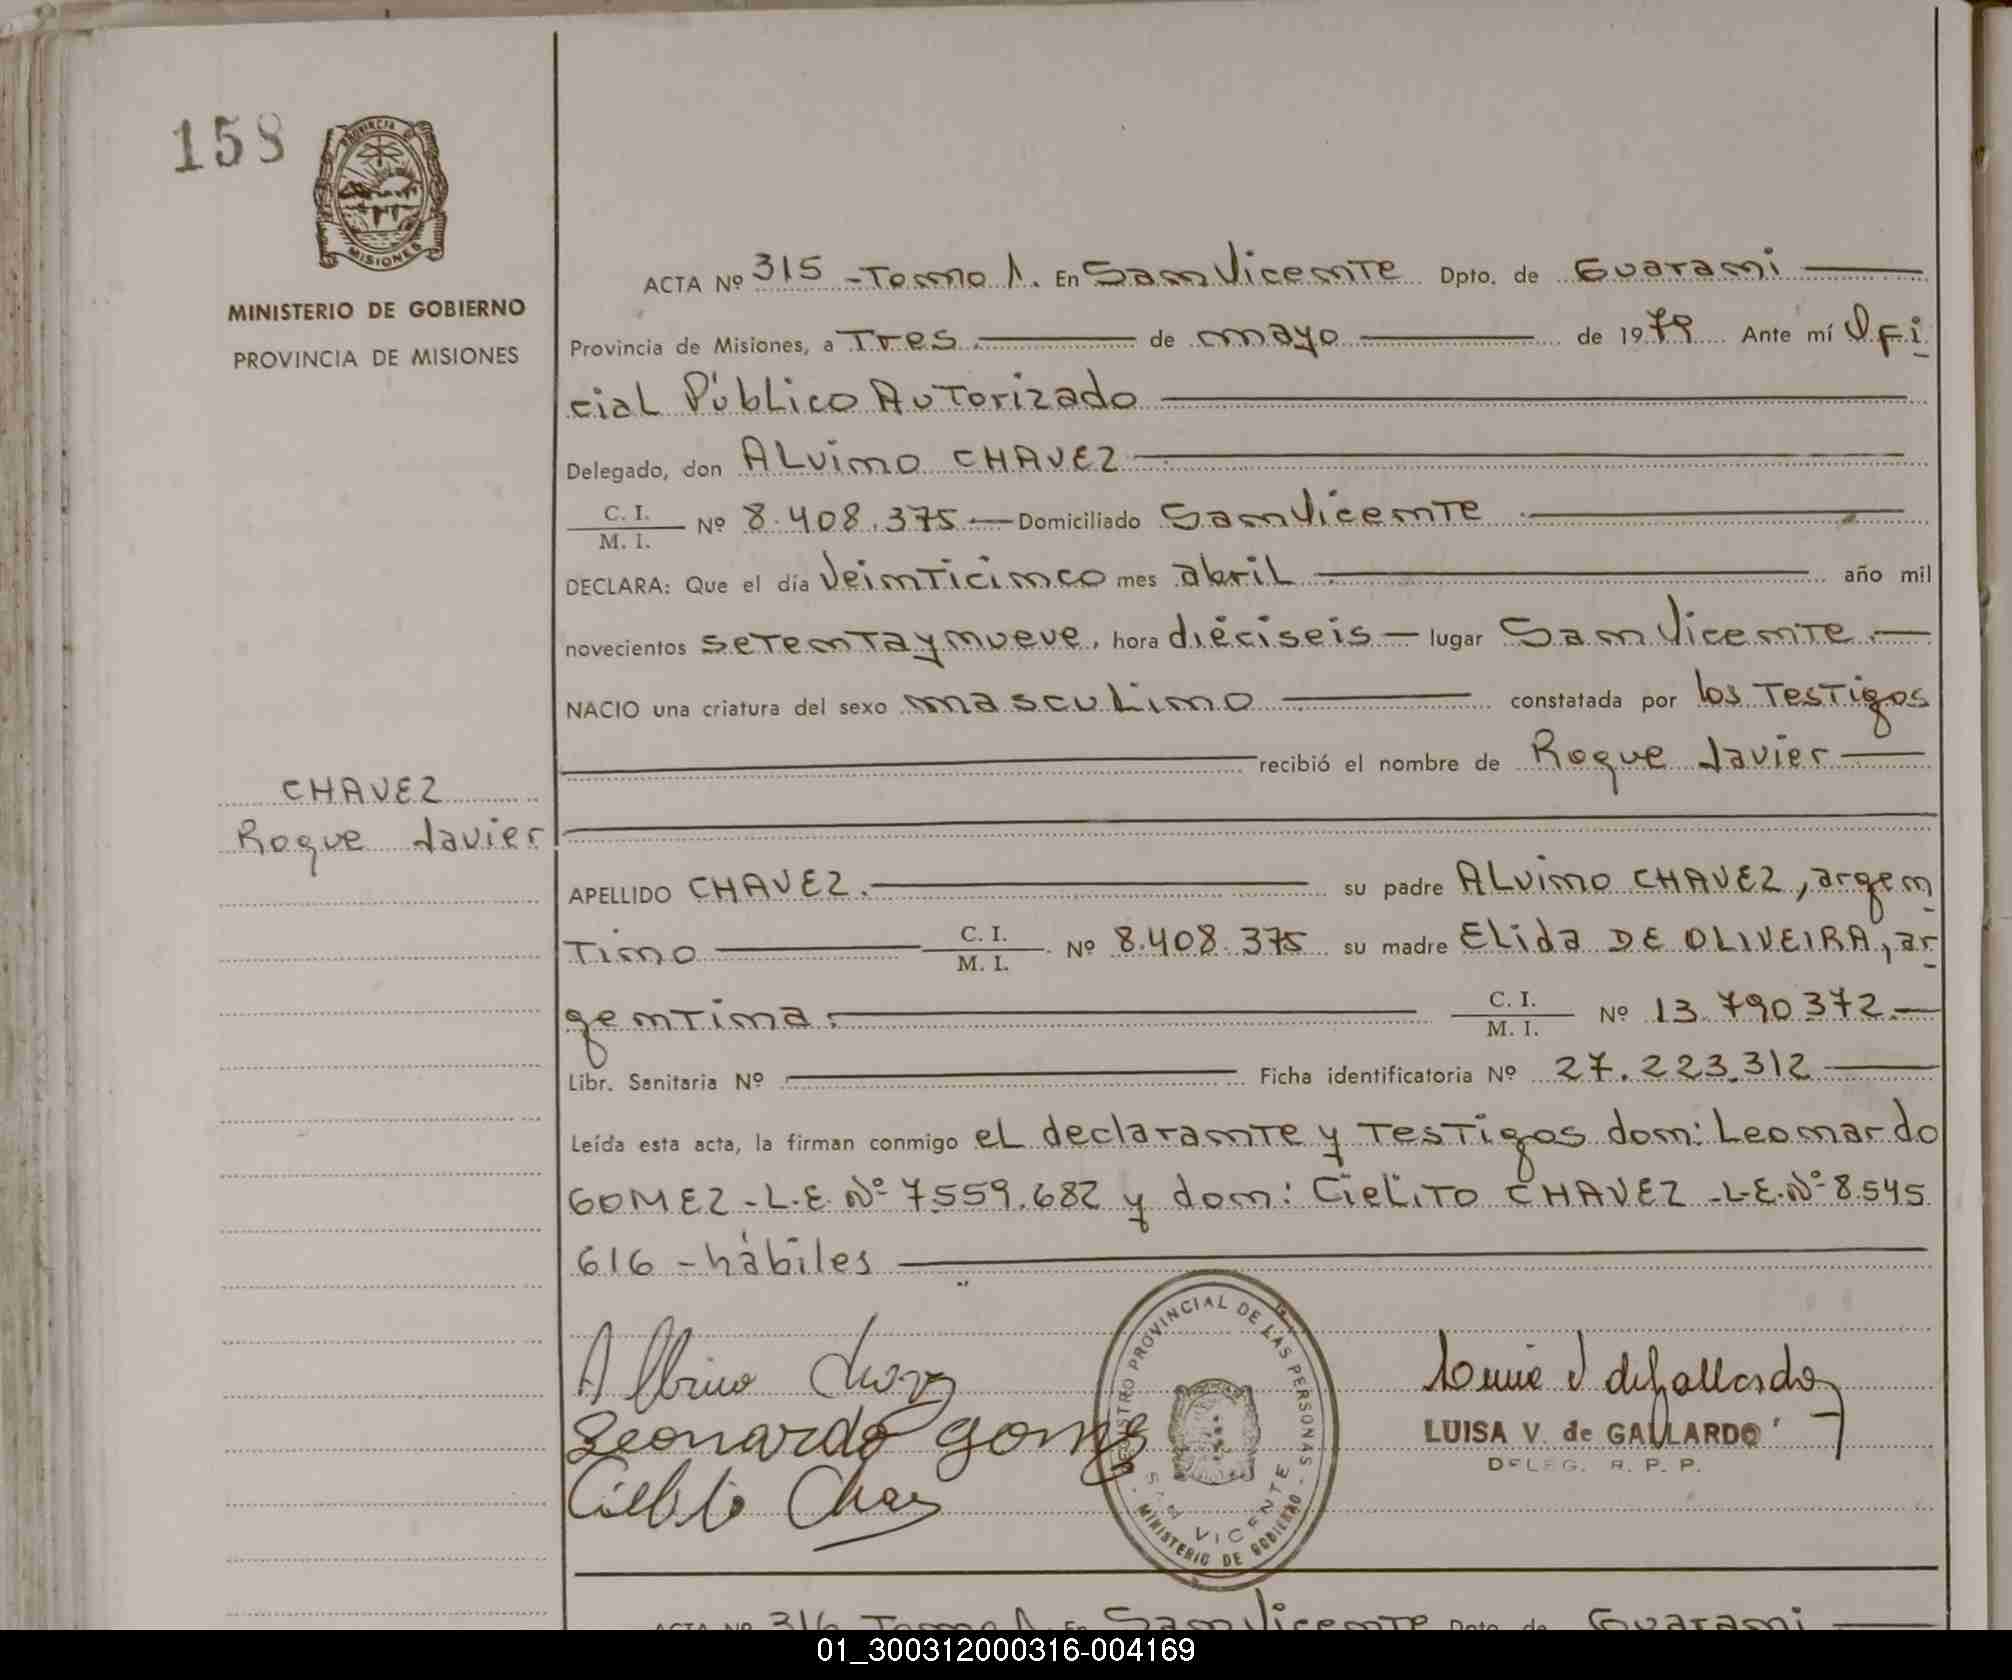 158
PROVINCIA
MISIONES
MINISTERIO DE GOBIERNO
PROVINCIA DE MISIONES
ACTA Nº 315 - Tomo 1. En San Vicente Dpto. de Guarani
Provincia de Misiones, a Tres de mayo de 1979 Ante mí Ofi
cial Público Autorizado
Delegado, don ALvino CHAVEZ
C. I.
M. I. Nº 8.408.375 Domiciliado San Vicente
DECLARA: Que el día Veinticinco mes abril año mil
novecientos setenta y nueve, hora dieciseis lugar San Vicente.
NACIO una criatura del sexo masculino constatada por los Testigos
recibió el nombre de Roque Javier
CHAVEZ
Roque Javier
APELLIDO CHAVEZ. su padre ALvino CHAVEZ, argen
Tino C. I. M. I. Nº 8.408.375 su madre ELida DE OLIVEIRA, ar
gentina. C. I. M. I. Nº 13.790.372.
Libr. Sanitaria Nº Ficha identificatoria Nº 27.223.312
Leída esta acta, la firman conmigo eL declarante y Testigos don: Leonardo
GOMEZ - L.E. Nº 7.559.682 y don: CieLiTO CHAVEZ - L.E. Nº 8.545
616 - hábiles
Albino
Leonardo Gomez
Cielito
REGISTRO PROVINCIAL DE LAS PERSONAS
SAN VICENTE
MINISTERIO DE GOBIERNO
LUISA V. de GALLARDO
DELEG. R. P. P.
ACTA Nº 316 Tomo 1 En San Vicente Dpto. de Guarani
01_300312000316-004169